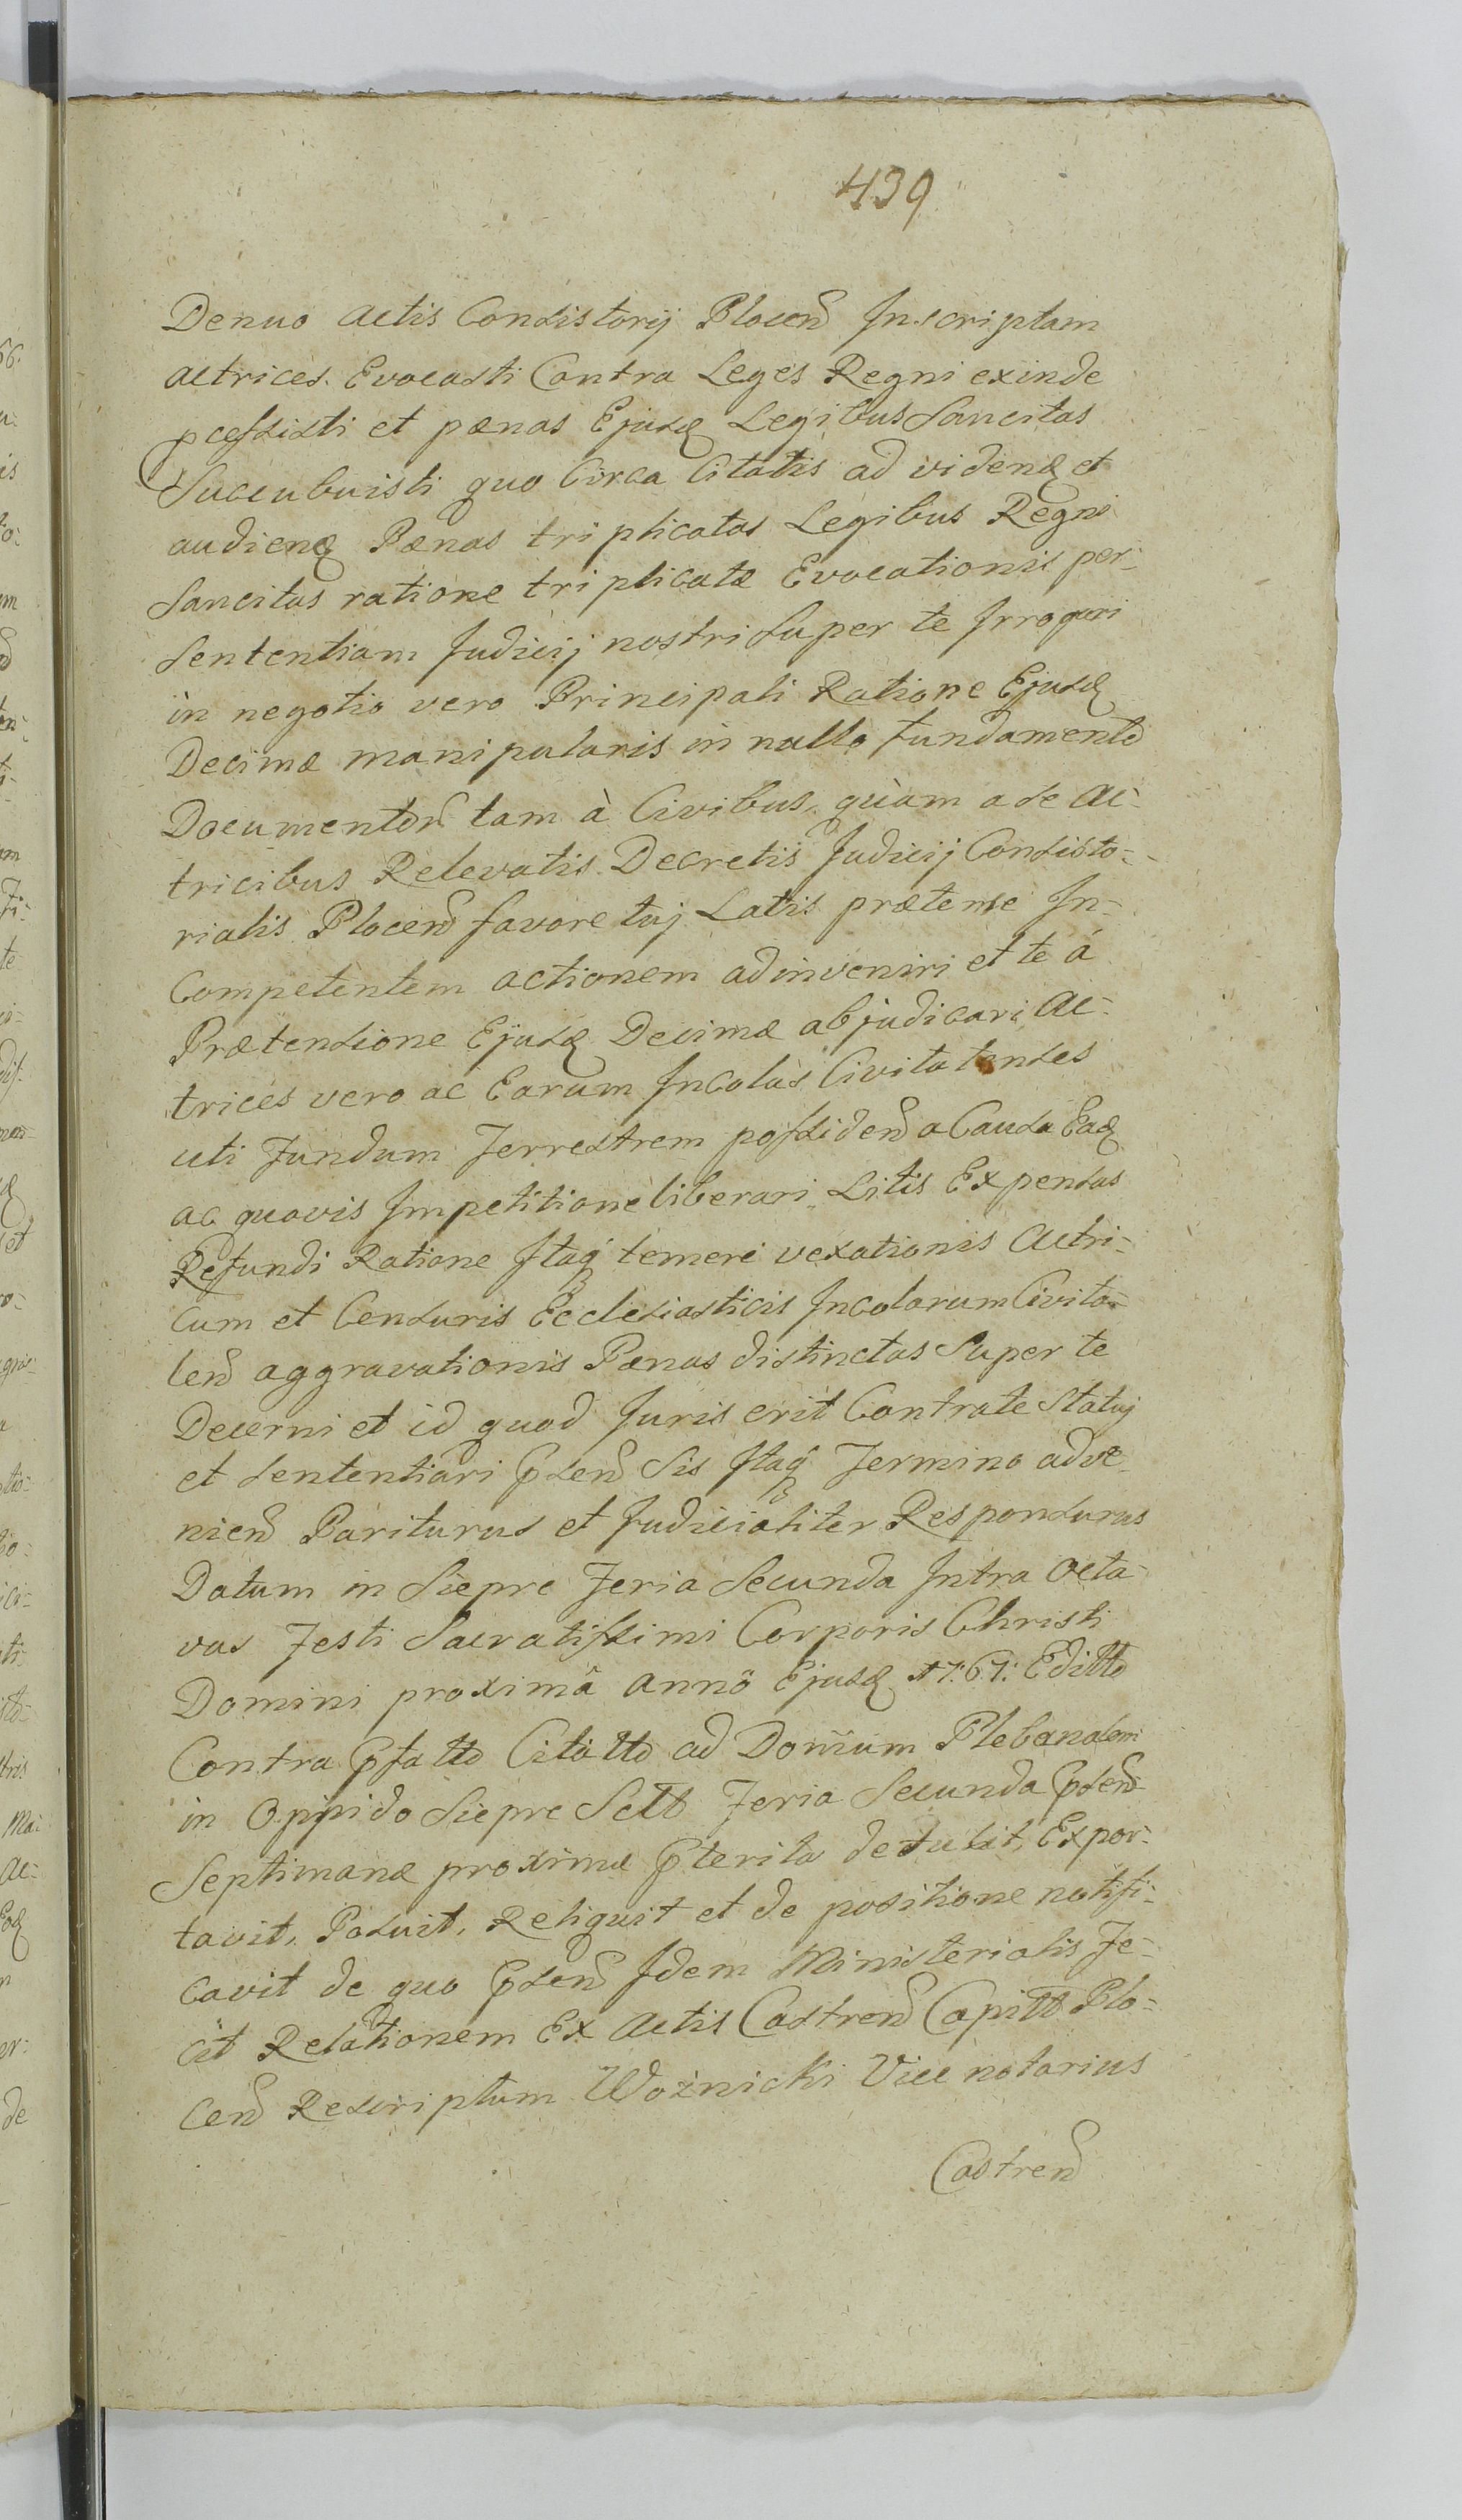 439
Denuo Actis Consistorij Plocen̄ Inscriptam
Actrices. Evocasti Contra Leges Regni exinde
pcessisti et pænas Ejusq Legibus Sancitas
Succubuisti quo Circa Citatis ad videnq et
audienq Pænas triplicatas Legibus Regni
Sancitas ratione triplicatæ Evocationis per-
Sententiam Judicij nostri Super te Irrogari
in negotio vero Principali Ratione Ejusq
Decimæ manipularis in nullo fundamento
Documentor̄ tam à Civibus, quàm a se Ac-
tricibus Relevatis Decretis Judicij Consisto-
rialis Plocen̄ favore tuj Latis prætense In-
Competentem actionem adinveniri et te á
Prætensione Ejusq Decimæ abjudicari, Ac-
trices vero ac Earum Incolas Civitatenses
uti Fundum Terrestrem possiden̄ a Causa Eaq
ac quovis Impetitione liberari, Litis Expensas
Refundi Ratione Itaq temere vexationis Actri-
Cum et Censuris Ecclesiasticis Incolarum Civita-
ten̄ aggravationis Pænas distinctas Super te
Decerni et id quod Juris erit Contra te Statuj
et Sententiari p̄sen̄ Sis Itaq Termino adve-
nien̄ Pariturus et Judicialiter Responsurus
Datum in Siepre Feria Secunda Intra Octa-
vas Festi Sacratissimi Corporis Christi
Domini proximâ Annô Ejusq 1767: Editto
Contra p̄fatto Citatto ad Domum Plebanalem
in Oppido Siepre Sctt Feria Secunda p̄sen̄
Septimanæ proxime p̄terita detulit, Expor-
tavit, Posuit, Reliquit et de positione notifi-
cavit de quo p̄sen̄ Idem Ministerialis Fe-
cit Relationem Ex Actis Castren̄ Capitt Plo-
cen̄ Rescriptum Woźnicki Vice notarius
Castren̄